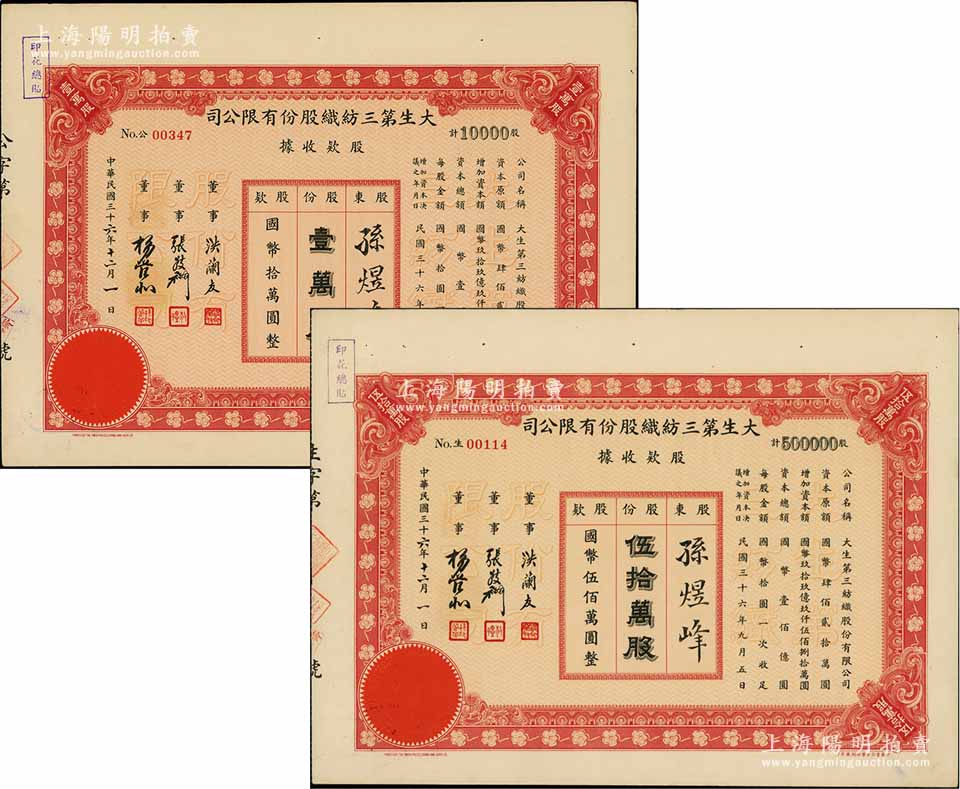 上海陽明拍賣
www.yangmingauction.com
印花總貼
壹萬股
壹萬股
司公限有份股織紡三第生大
No.公 00347
計10000股
據收款股
公司名稱 大生第三紡織股
資本原額 國幣肆佰貳
增加資本額 國幣玖拾玖億玖仟
資本總額 國幣壹
每股金額 國幣拾圓
增加資本決議之年月日 民國三十六年
股東 孫煜
股份 壹萬
股款 國幣拾萬圓整
董事 洪蘭友
董事 張敬禮
董事 楊管北
中華民國三十六年十二月一日
公字第
號
上海陽明拍賣
www.yangmingauction.com
印花總貼
伍拾萬股
伍拾萬股
司公限有份股織紡三第生大
No.生 00114
計500000股
據收款股
公司名稱 大生第三紡織股份有限公司
資本原額 國幣肆佰貳拾萬圓
增加資本額 國幣玖拾玖億玖仟伍佰捌拾萬圓
資本總額 國幣壹佰億圓
每股金額 國幣拾圓一次收足
增加資本決議之年月日 民國三十六年九月五日
股東 孫煜峰
股份 伍拾萬股
股款 國幣伍佰萬圓整
董事 洪蘭友
董事 張敬禮
董事 楊管北
中華民國三十六年十二月一日
生字第
號
伍拾萬股
上海陽明拍賣
www.yangmingauction.com